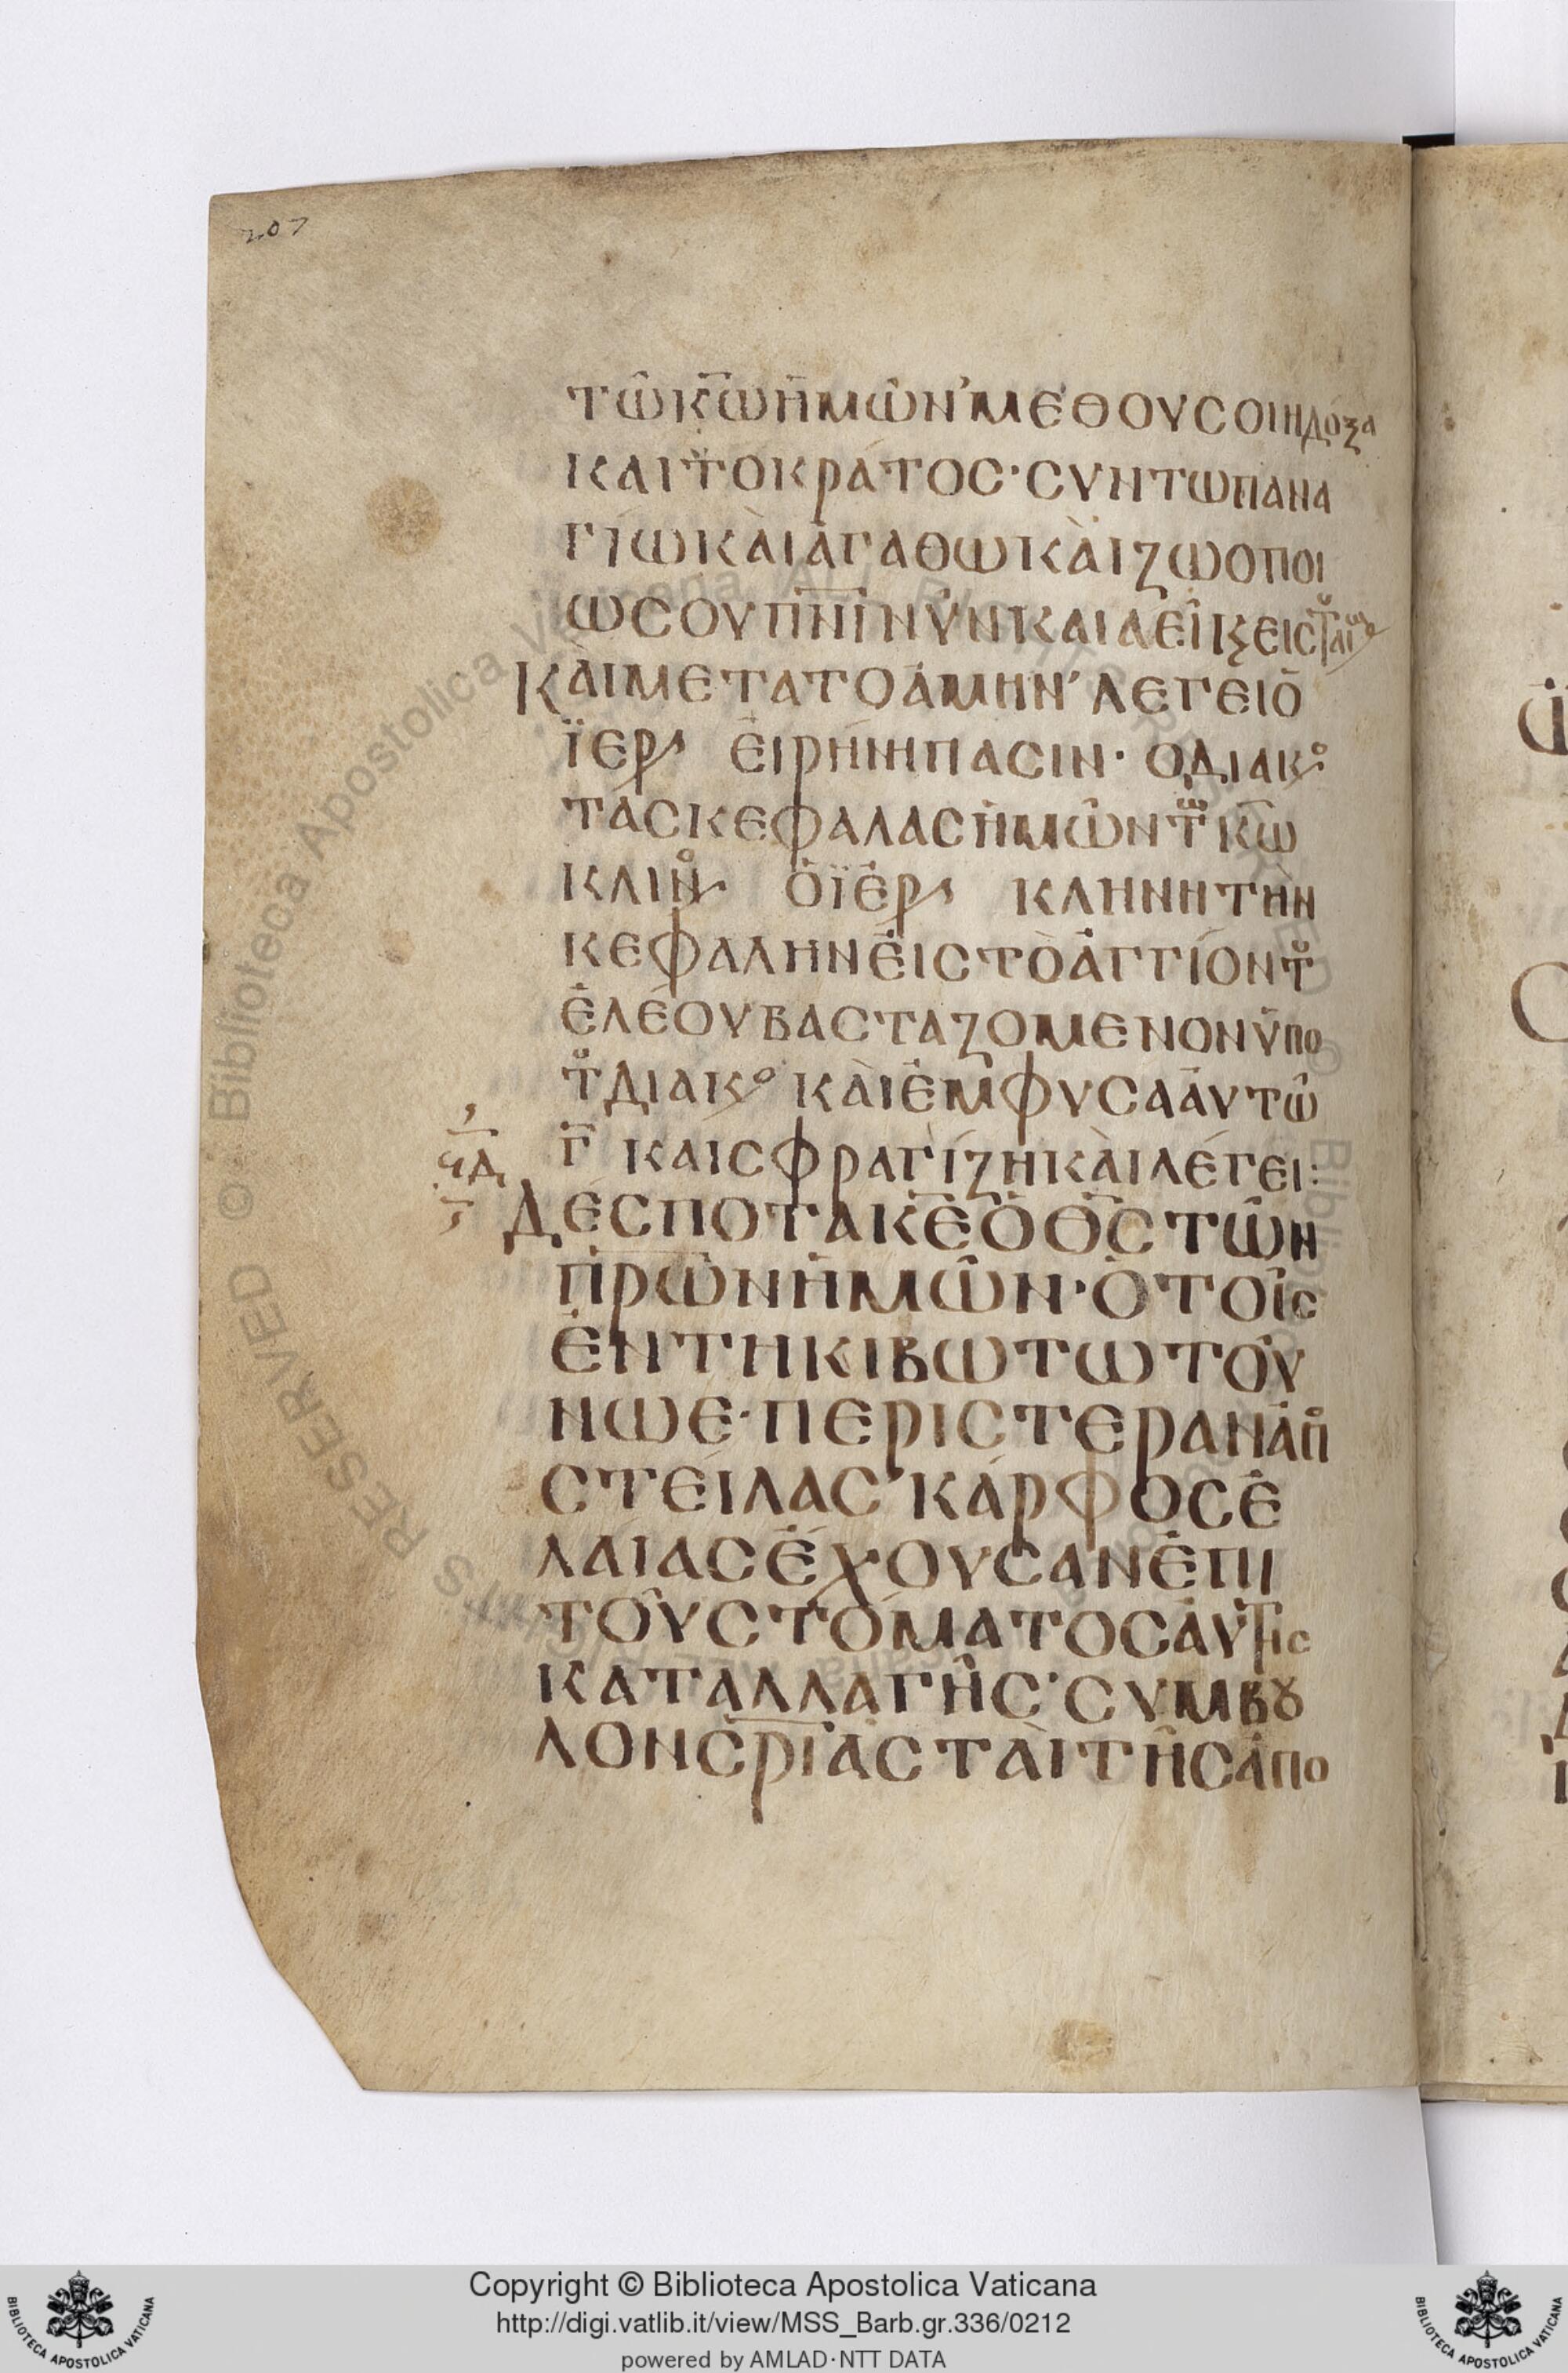 207
ΤΩ͂ Κ̅Ω̅ ἩΜΩ͂Ν’ ΜΕΘ ΟΥ ΣΟΙ Η ΔΟΞΑ
ΚΑΙ Τ̊Ο ΚΡΑΤΟΣ· ΣΥΝ ΤΩ ΠΑΝΑ
ΓΙΩ ΚΑῚ ἈΓΑΘΩ ΚΑῚ ΖΩΟΠΟΙ
Ω ΣΟΥ Π̅Ν̅Ι̅ ΝΥ͂Ν ΚΑΙ ΑΕῚ ΚϚ ΕΙΣ Τ
ΚΑῚ ΜΕΤΑ ΤΟ ἈΜΗΝ’ ΛΕΓΕΙ Ὁ
ΪΕΡ ΕἸΡΗΝΗ ΠΑΣΙΝ· Ο ΔΙΑΚο
ΤᾺΣ ΚΕΦΑΛΑΣ ἩΜΩ͂Ν Τω Κ̅Ω̅
ΚΛΙΝο Ὁ ΪΕΡ ΚΛΗΝΗ ΤῊΝ
ΚΕΦΑΛΗΝ ἘΙΣ ΤῸ ἈΓΓΙΟΝ Το
ἘΛΕΟΥ ΒΑΣΤΑΖΟΜΕΝΟΝ ὙΠΟ
Το ΔΙΑΚο ΚΑῚ ἘΜΦΥΣΑ ἈΥΤΩ͂
Γ̅ ΚΑΙ ΣΦΡΑΓΙΖΗ ΚΑῚ ΛΕΓΕΙ:
ΔΕΣΠΟΤΑ Κ̅Ε̅ Ὁ Θ̅Σ̅ ΤΩ͂Ν
Π̅Ρ̅Ω̅Ν̅ ἩΜΩ͂Ν· Ὁ ΤΟΙ͂Σ
ἘΝ ΤΗ ΚΙΒΩΤΩ ΤΟΥ͂
ΝΩΕ· ΠΕΡΙΣΤΕΡΑΝ ἈΠο
ΣΤΕΙΛΑΣ’ ΚΑΡΦΟΣ Ἐ
ΛΑΙΑΣ ἘΧΟΥΣΑΝ ἘΠΙ
ΤΟΥ͂ ΣΤΟΜΑΤΟΣ ἈΥΤΗΣ
ΚΑΤΑΛΛΑΓΗ͂Σ· ΣΥΜΒȢ
ΛΟΝ Σ̅Ρ̅Ι̅ΑΣ ΤᾺΙ ΤΗ͂Σ ἈΠΟ
Copyright © Biblioteca Apostolica Vaticana
http://digi.vatlib.it/view/MSS_Barb.gr.336/0212
powered by AMLAD·NTT DATA